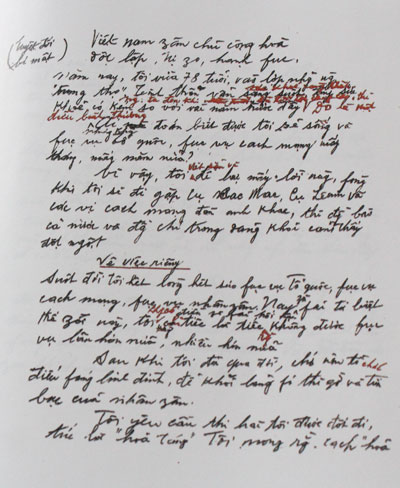 (Tuyệt đối
bí mật)
Việt nam zân chủ cộng hoà
độc lập, tự zo, hạnh fúc.
Năm nay, tôi vừa 78 tuổi, vào lớp những
"trung thọ". Tinh thần vẫn
khoẻ có kém so với vài năm trước đây. Đó là một
điều bình thường.
đoán biết được tôi sẽ sống và
fục vụ tổ quốc, fục vụ cách mạng mấy
tháng, mấy năm nữa?
Vì vậy, tôi để lại mấy lời này, fòng
khi tôi sẽ đi gặp Cụ Các Mác, Cụ Lenin và
các vị cách mạng đàn anh khác, thì đồng bào
cả nước và đồng chí trong đảng khỏi cảm thấy
đột ngột
Về việc riêng
Suốt đời tôi hết lòng hết sức fục vụ Tổ quốc, fục vụ
cách mạng, fục vụ nhân zân. Nay zù fải từ biệt
thế zới này, tôi không có điều gì fải hối hận
chỉ tiếc là tiếc không được fục
vụ lâu hơn nữa, nhiều hơn nữa
Sau khi tôi đã qua đời, chớ nên tổ chức
điếu fúng linh đình, để khỏi lãng fí thì zờ và tiền
bạc của nhân zân.
Tôi yêu cầu thi hài tôi được đốt đi,
tức là "hoả táng". Tôi mong rằng cách "hoả